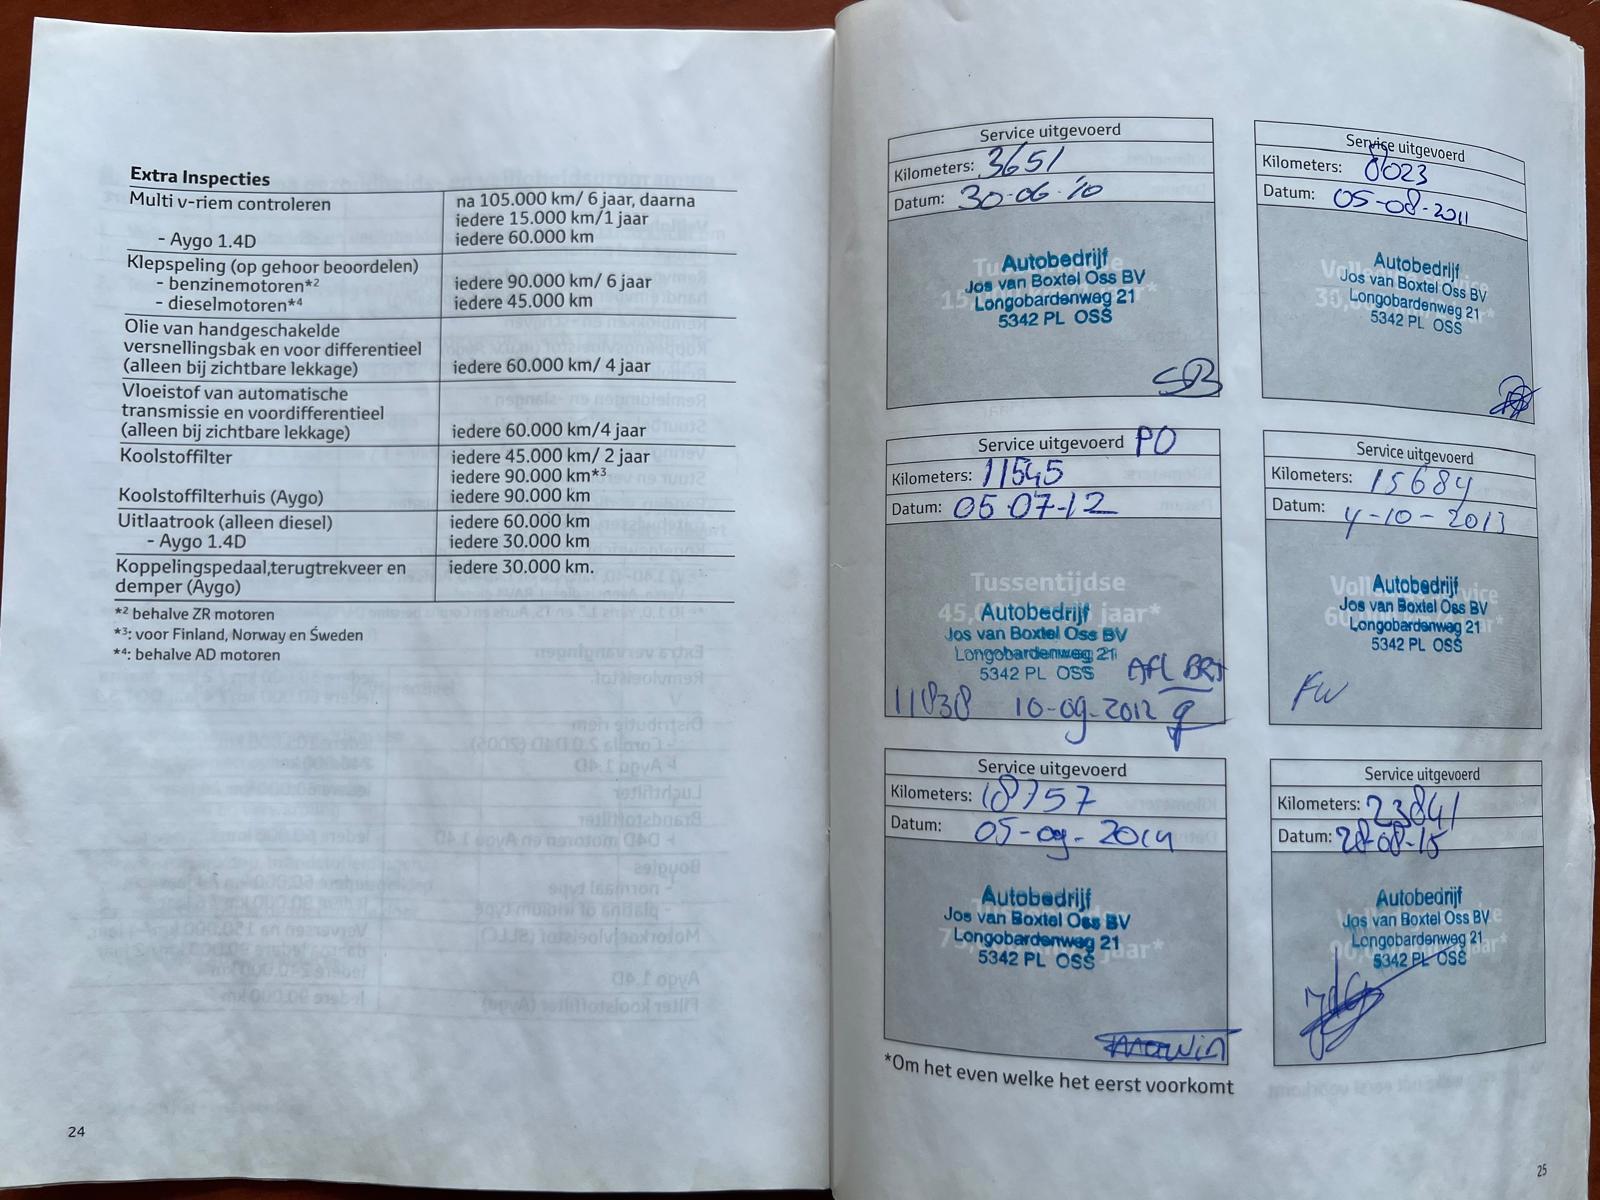 Extra Inspecties
Multi v-riem controleren na 105.000 km/ 6 jaar, daarna
iedere 15.000 km/1 jaar
- Aygo 1.4D iedere 60.000 km
Klepspeling (op gehoor beoordelen)
- benzinemotoren*2 iedere 90.000 km/ 6 jaar
- dieselmotoren*4 iedere 45.000 km
Olie van handgeschakelde
versnellingsbak en voor differentieel
(alleen bij zichtbare lekkage) iedere 60.000 km/ 4 jaar
Vloeistof van automatische
transmissie en voordifferentieel
(alleen bij zichtbare lekkage) iedere 60.000 km/4 jaar
Koolstoffilter iedere 45.000 km/ 2 jaar
iedere 90.000 km*3
Koolstoffilterhuis (Aygo) iedere 90.000 km
Uitlaatrook (alleen diesel) iedere 60.000 km
- Aygo 1.4D iedere 30.000 km
Koppelingspedaal,terugtrekveer en iedere 30.000 km.
demper (Aygo)
*2 behalve ZR motoren
*3: voor Finland, Norway en Śweden
*4: behalve AD motoren
24
Service uitgevoerd
Kilometers: 3651
Datum: 30-06-'10
Autobedrijf
Jos van Boxtel Oss BV
Longobardenweg 21
5342 PL OSS
Service uitgevoerd
Kilometers: 8023
Datum: 05-08-2011
Autobedrijf
Jos van Boxtel Oss BV
Longobardenweg 21
5342 PL OSS
Service uitgevoerd PO
Kilometers: 11545
Datum: 05-07-12
Tussentijdse
45, jaar*
Autobedrijf
Jos van Boxtel Oss BV
Longobardenweg 21
5342 PL OSS
11838 10-09-2012
Service uitgevoerd
Kilometers: 15684
Datum: 4-10-2013
Autobedrijf
Jos van Boxtel Oss BV
Longobardenweg 21
5342 PL OSS
FW
Service uitgevoerd
Kilometers: 18757
Datum: 05-09-2014
Autobedrijf
Jos van Boxtel Oss BV
Longobardenweg 21
5342 PL OSS
Service uitgevoerd
Kilometers: 23841
Datum: 28-08-15
Autobedrijf
Jos van Boxtel Oss BV
Longobardenweg 21
5342 PL OSS
*Om het even welke het eerst voorkomt
25